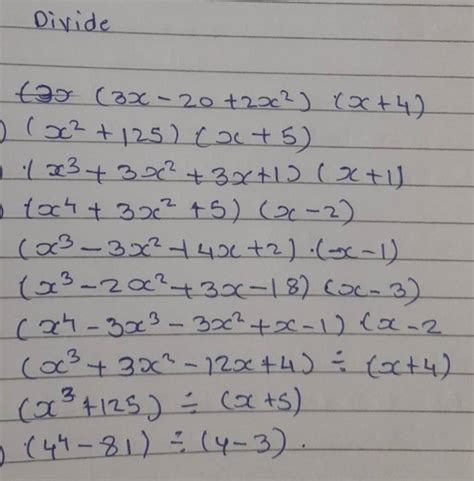 Divide
(3x - 20 + 2x²) (x + 4)
) (x² + 125) (x + 5)
) (x³ + 3x² + 3x + 1) (x + 1)
) (x⁴ + 3x² + 5) (x - 2)
(x³ - 3x² + 4x + 2) · (x - 1)
(x³ - 2x² + 3x - 18) (x - 3)
(x⁴ - 3x³ - 3x² + x - 1) (x - 2
(x³ + 3x² - 12x + 4) ÷ (x + 4)
(x³ + 125) ÷ (x + 5)
) (4⁴ - 81) ÷ (4 - 3).